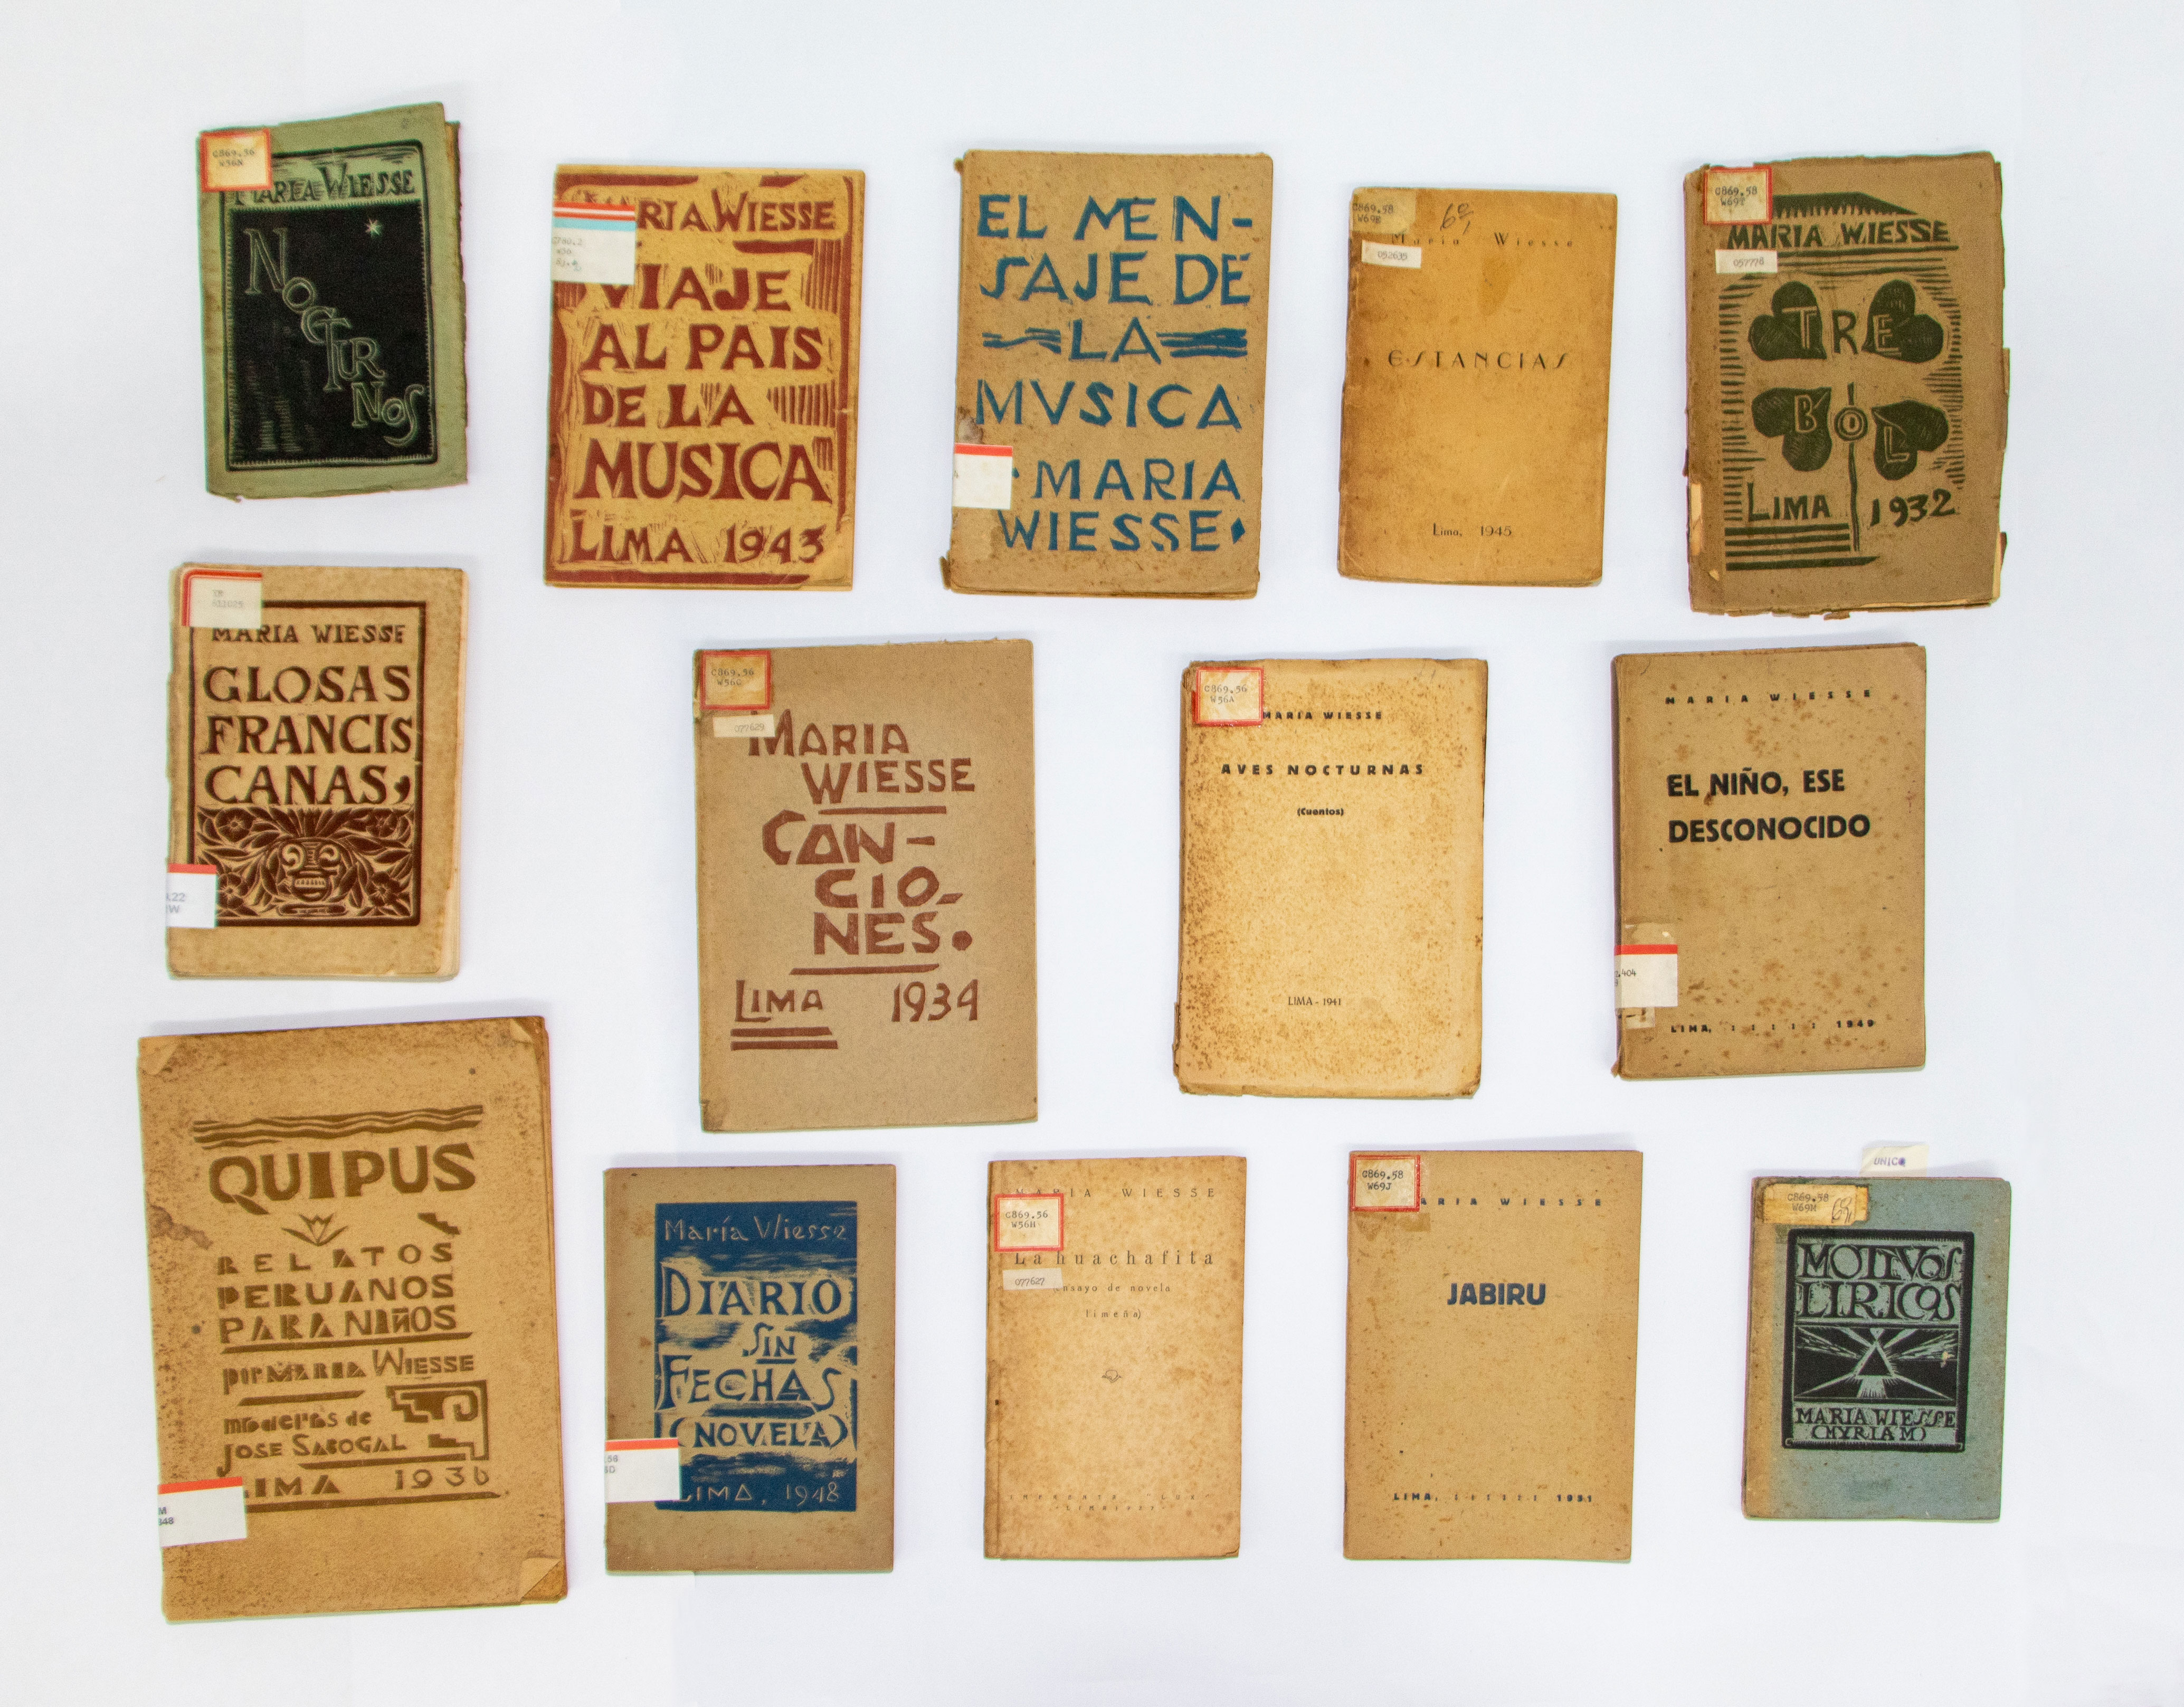 C869.56
W56N
MARIA WIESSE
NOCTURNOS
MARIA WIESSE
C780.2
VIAJE
AL PAIS
DE LA
MUSICA
LIMA 1943
EL MEN-
SAJE DE
LA
MVSICA
MARIA
WIESSE
C869.58
W69E
6ª
Maria Wiesse
052635
ESTANCIAS
Lima, 1945
C869.58
W69T
MARIA WIESSE
057778
TRE
BOL
LIMA 1932
MARIA WIESSE
GLOSAS
FRANCIS
CANAS
.22
W
C869.56
W56C
077629
MARIA
WIESSE
CAN-
CIO-
NES.
LIMA 1934
C869.56
W56A
MARIA WIESSE
AVES NOCTURNAS
(Cuentos)
LIMA - 1941
MARIA WIESSE
EL NIÑO, ESE
DESCONOCIDO
.404
LIMA, : : : : : 1949
QUIPUS
RELATOS
PERUANOS
PARA NIÑOS
por MARIA WIESSE
maderas de
JOSE SABOGAL
LIMA 1936
M
348
María Wiesse
DIARIO
SIN
FECHAS
(NOVELA)
LIMA, 1948
MARIA WIESSE
C869.56
W56H
La huachafita
077627
ensayo de novela
limeña)
C869.58
W69J
MARIA WIESSE
JABIRU
LIMA, : : : : : : 1951
UNICO
C869.58
W69M
MOTIVOS
LIRICOS
MARIA WIESSE
(MYRIAM)